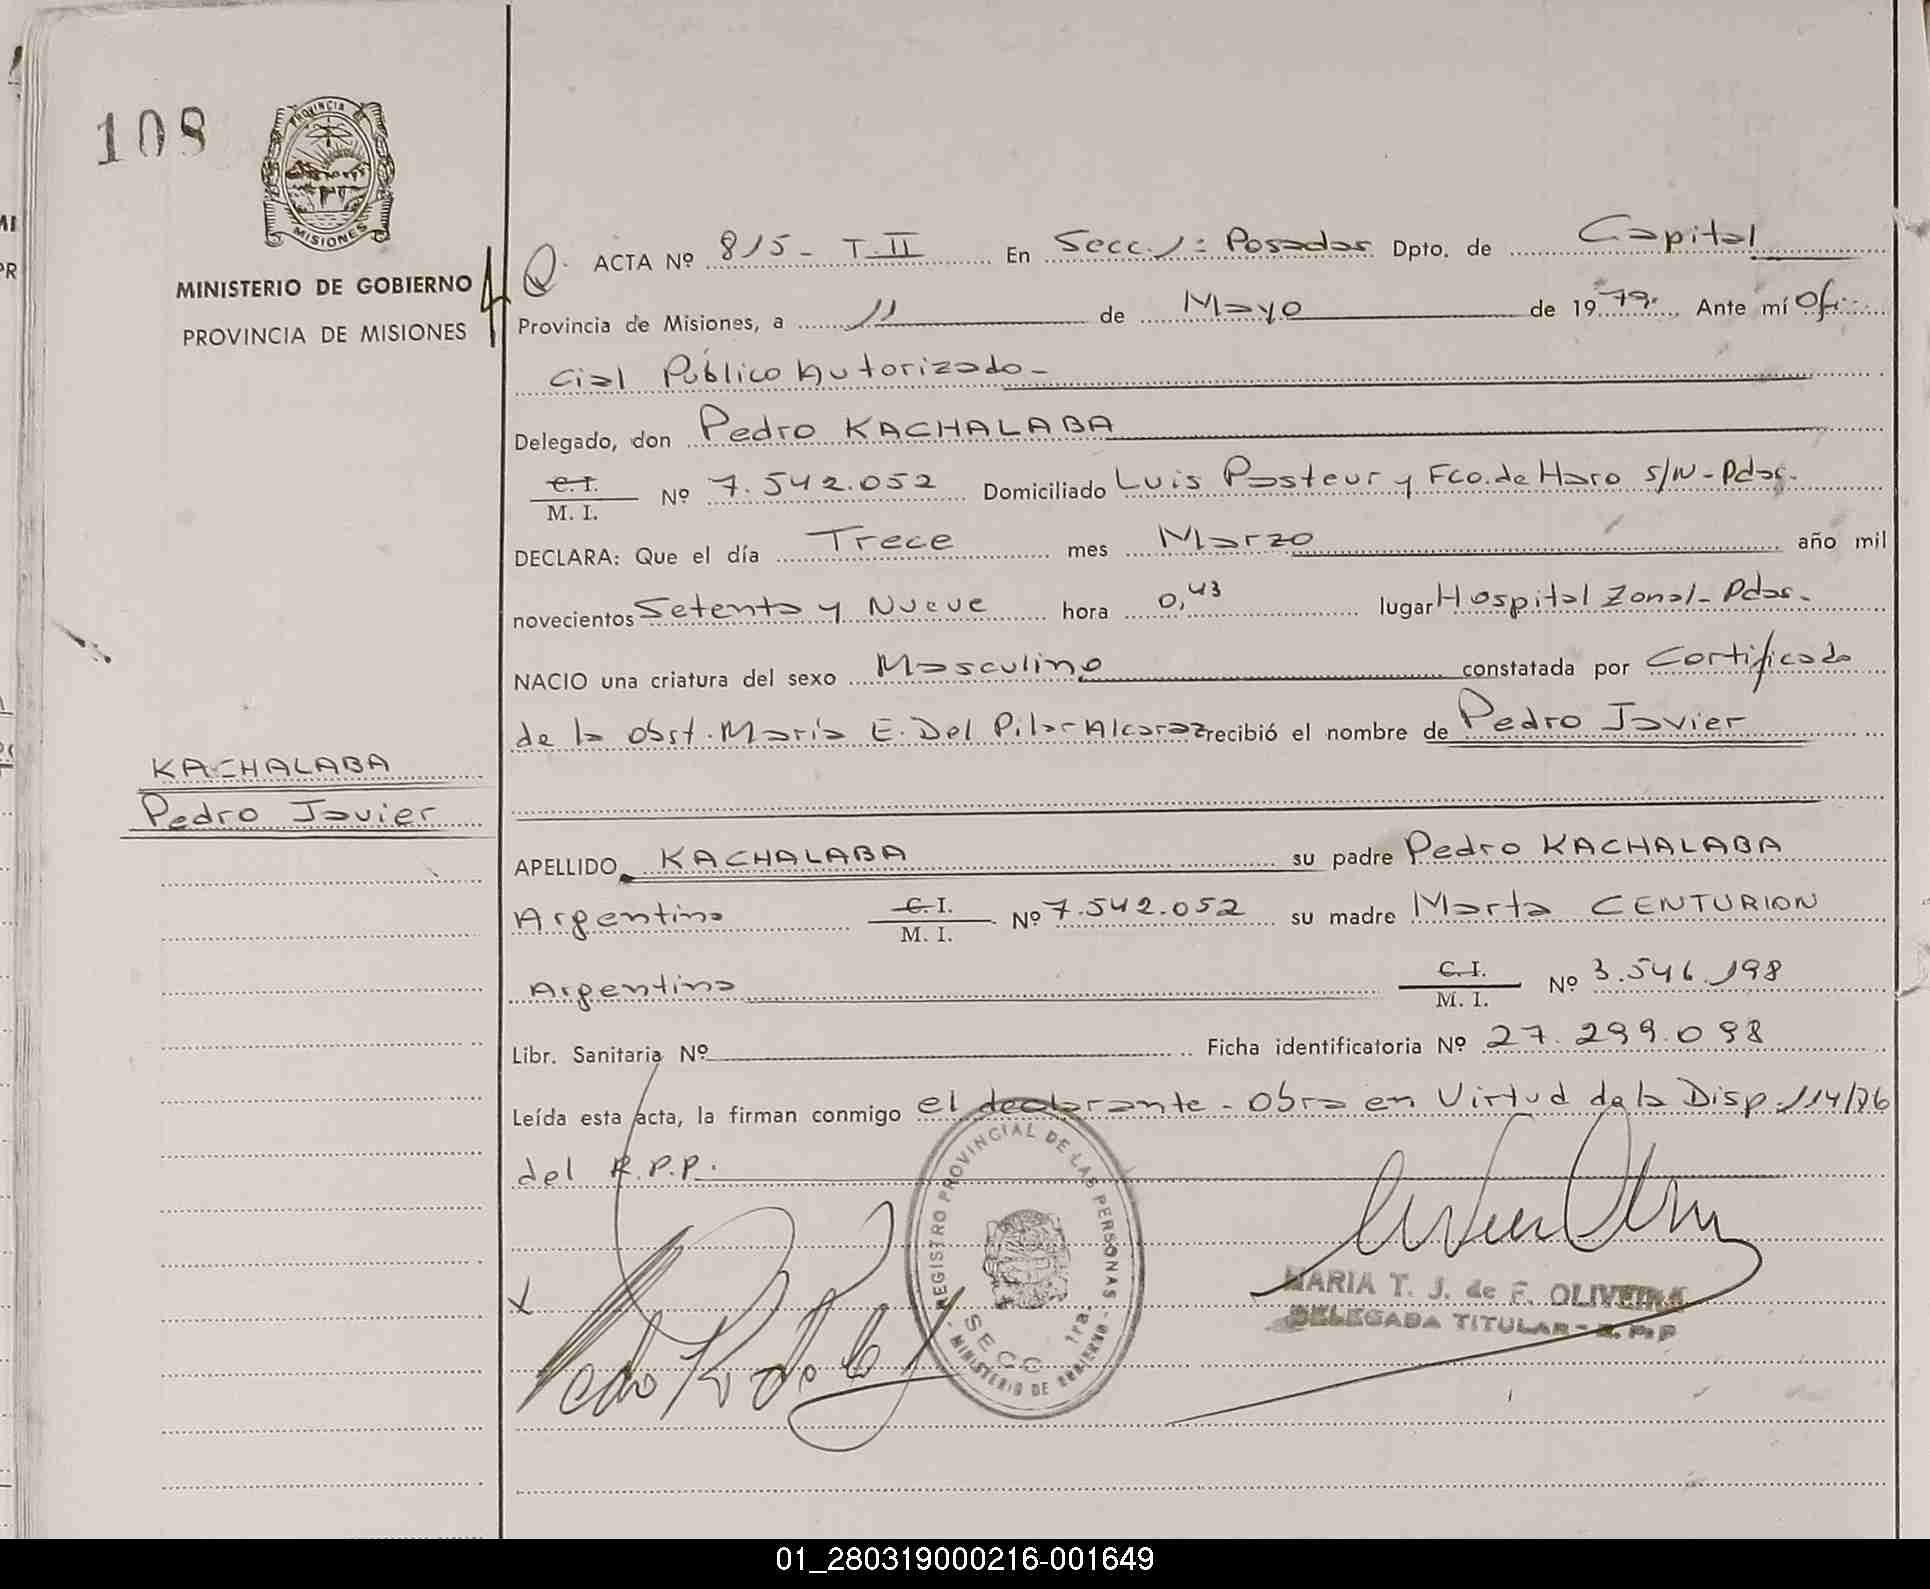 108
PROVINCIA DE
MISIONES
MINISTERIO DE GOBIERNO
PROVINCIA DE MISIONES
KACHALABA
Pedro Javier
ACTA Nº 815 - T. II En Secc. 1: Posadas Dpto. de Capital
Provincia de Misiones, a 11 de Mayo de 1979. Ante mí Ofi-
cial Público Autorizado -
Delegado, don Pedro KACHALABA
C. I.
M. I.
Nº 7.542.052 Domiciliado Luis Pasteur y Fco. de Haro S/N - Pdas.
DECLARA: Que el día Trece mes Marzo año mil
novecientos Setenta y Nueve hora 0,43 lugar Hospital Zonal - Pdas.
NACIO una criatura del sexo Masculino constatada por Certificado
de la Obst. María E. Del Pilar Alcaraz recibió el nombre de Pedro Javier
APELLIDO KACHALABA su padre Pedro KACHALABA
Argentino C. I. M. I. Nº 7.542.052 su madre Marta CENTURION
Argentina C. I. M. I. Nº 3.546.198
Libr. Sanitaria Nº Ficha identificatoria Nº 27.299.098
Leída esta acta, la firman conmigo el declarante - Obra en Virtud de la Disp. 114/76
del R.P.P.
REGISTRO PROVINCIAL DE LAS PERSONAS - MINISTERIO DE GOBIERNO -
SECC 1ra.
MARIA T. J. de F. OLIVEIRA
DELEGADA TITULAR - R. P. P
01_280319000216-001649